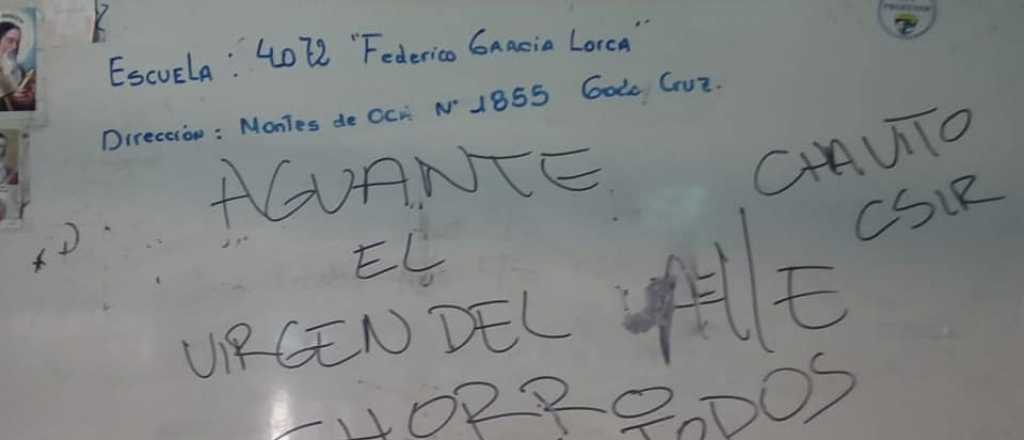 Escuela: 4072 "Federico García Lorca"
Dirección: Montes de Oca N° 1855 Godo Cruz.
AGUANTE
EL
VIRGEN DEL VAllE
CHORRO
TODOS
CHAVITO
CSIR